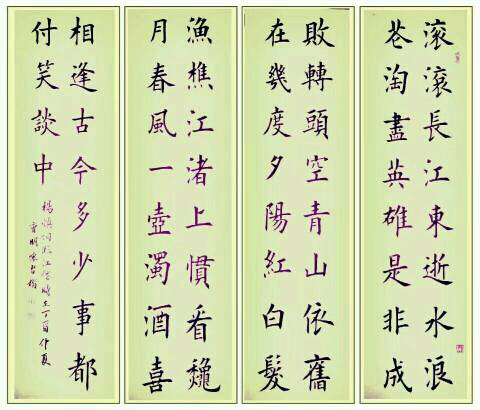 滾滾長江東逝水浪
花淘盡英雄是非成
敗轉頭空青山依舊
在幾度夕陽紅白髮
漁樵江渚上慣看龝
月春風一壺濁酒喜
相逢古今多少事都
付笑談中
楊慎詞臨江仙時在丁酉仲夏